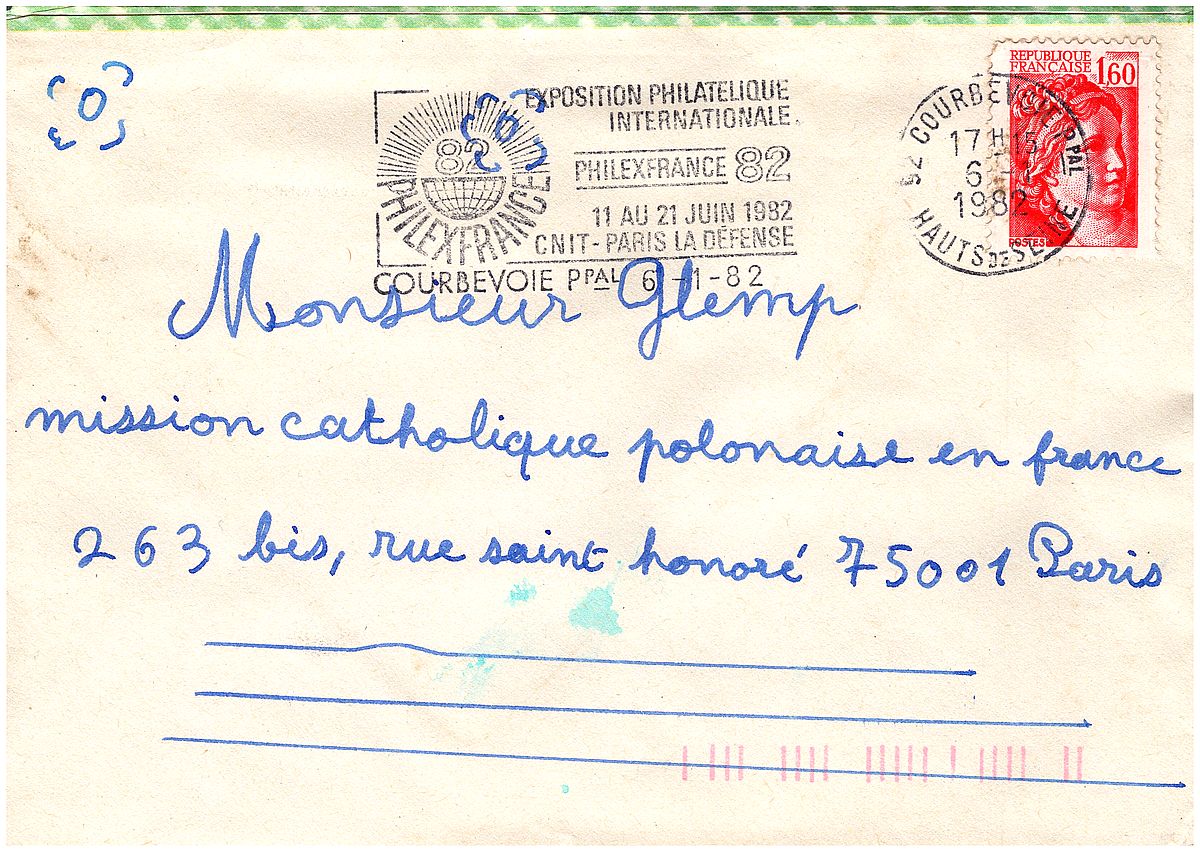 EXPOSITION PHILATELIQUE
INTERNATIONALE
82
PHILEXFRANCE
PHILEXFRANCE 82
11 AU 21 JUIN 1982
CNIT-PARIS LA DÉFENSE
COURBEVOIE PPAL 6-1-82
REPUBLIQUE
FRANÇAISE
1,60
POSTES
92 COURBEVOIE PPAL
17H15
6-1
1982
HAUTS DE SEINE
Monsieur Glemp
mission catholique polonaise en france
263 bis, rue saint honoré 75001 Paris